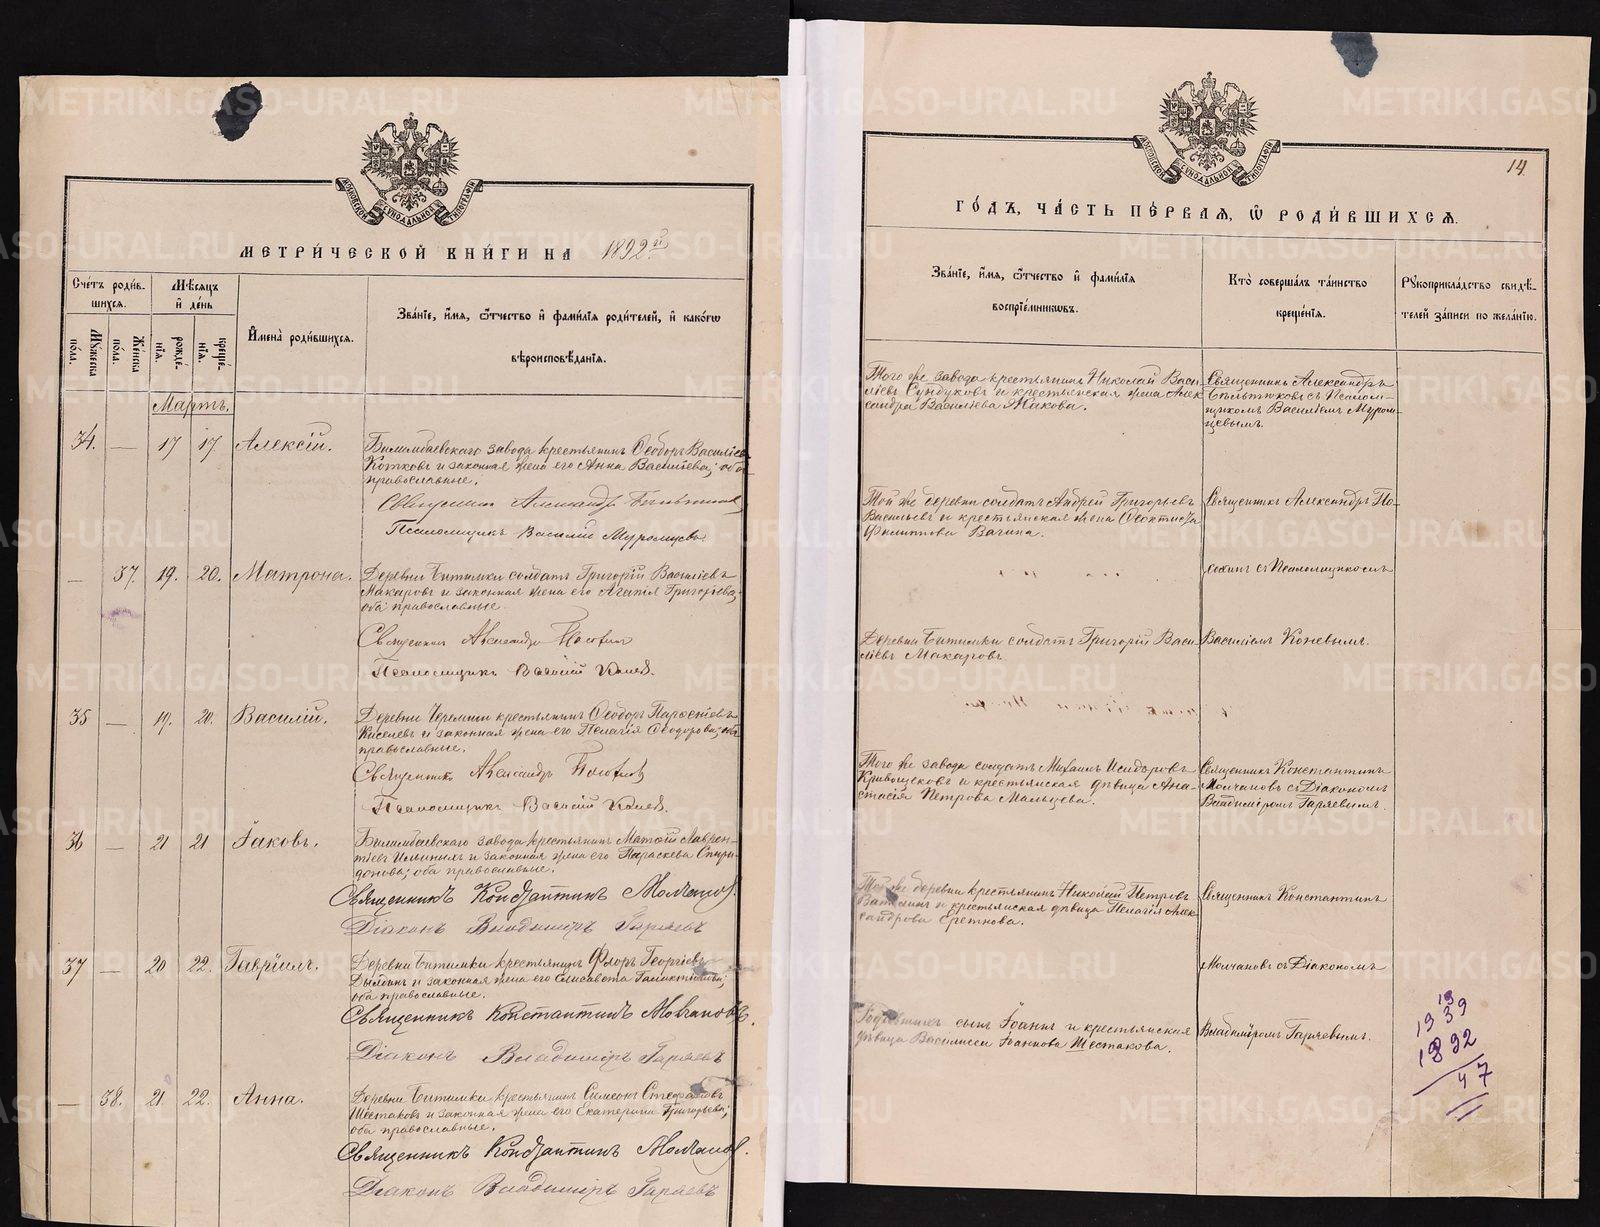 МЕТРИ́ЧЕСКОЙ КНИ́ГИ НА 1892й
Сче́тъ роди́в-
шихся.
Мѣ́сяцъ
и҆ де́нь
Мꙋ́жеска по́ла.
Же́нска по́ла.
рожде́-
нїя.
креще́-
нїя.
И҆мена̀ роди́вшихся.
Зва́нїе, и҆́мя, ѻ҆́тчество и҆ фами́лїя роди́телей, и҆ како́гѡ
вѣроисповѣ́данїя.
Мартъ.
34. — 17 17 Алексій.
Билимбаевскаго завода крестьянинъ Ѳеодоръ Василіевъ
Котковъ и законная жена его Анна Василіева; оба
православные.
Священникъ Александръ
Псаломщикъ Василій Муромцевъ
— 37. 19. 20. Матрона.
Деревни Битимки солдатъ Григорій Василіевъ
Макаровъ и законная жена его Агапія Григорьева;
оба православные.
Священникъ Александръ
Псаломщикъ Василій Коневъ.
35 — 19. 20. Василій.
Деревни Черемши крестьянинъ Ѳеодоръ
Киселевъ и законная жена его Пелагія Ѳеодорова; оба
православные.
Священникъ Александръ
Псаломщикъ Василій Коневъ.
36 — 21 21 Іаковъ.
Билимбаевскаго завода крестьянинъ Матѳій Лаврен-
тіевъ и законная жена его Параскева Спири-
донова; оба православные.
Священникъ Константинъ Молчановъ.
Діаконъ Владиміръ Гаряевъ
37 — 20 22. Гавріилъ.
Деревни Битимки крестьянинъ Флоръ Георгіевъ
и законная жена его Елисавета
оба православные.
Священникъ Константинъ Молчановъ.
Діаконъ Владиміръ Гаряевъ
— 38. 21. 22. Анна.
Деревни Битимки крестьянинъ Симеонъ Стефановъ
Шестаковъ и законная жена его Екатерина Григорьева;
оба православные.
Священникъ Константинъ Молчановъ.
Діаконъ Владиміръ Гаряевъ
14.
ГО́ДЪ, ЧА́СТЬ ПЕ́РВАЯ, Ѡ҆ РОДИ́ВШИХСЯ.
Зва́нїе, и҆́мя, ѻ҆́тчество и҆ фами́лїя
воспрїе́мникѡвъ.
Кто̀ соверша́лъ та́инство
креще́нїя.
Рꙋкоприкла́дство свидѣ́-
телей за́писи по жела́нїю.
Того же завода крестьянинъ Николай Васи-
ліевъ Сундуковъ и крестьянская жена Алек-
сандра Василіева Жакова.
Священникъ Александръ
съ Псалом-
щикомъ Василіемъ Муром-
цевымъ.
Той же деревни солдатъ Андрей Григорьевъ
Васильевъ и крестьянская жена Ѳеоктиста
Филиппова Вагина.
Священникъ Александръ По-
съ Псаломщикомъ
Деревни Битимки солдатъ Григорій Васи-
ліевъ Макаровъ
Василіемъ Коневымъ.
Того же завода солдатъ Михаилъ Исидоровъ
Кривощековъ и крестьянская дѣвица Ана-
стасія Петрова Мальцева.
Священникъ Константинъ
Молчановъ съ Діакономъ
Владиміромъ Гаряевымъ.
Той же деревни крестьянинъ Николай Петровъ
и крестьянская дѣвица Пелагія Алек-
сандрова Еретнова.
Священникъ Константинъ
Молчановъ съ Діакономъ
сынъ Іоаннъ и крестьянская
дѣвица Василисса Іоаннова Шестакова.
Владиміромъ Гаряевымъ.
19
1939
1892
47
METRIKI.GASO-URAL.RU